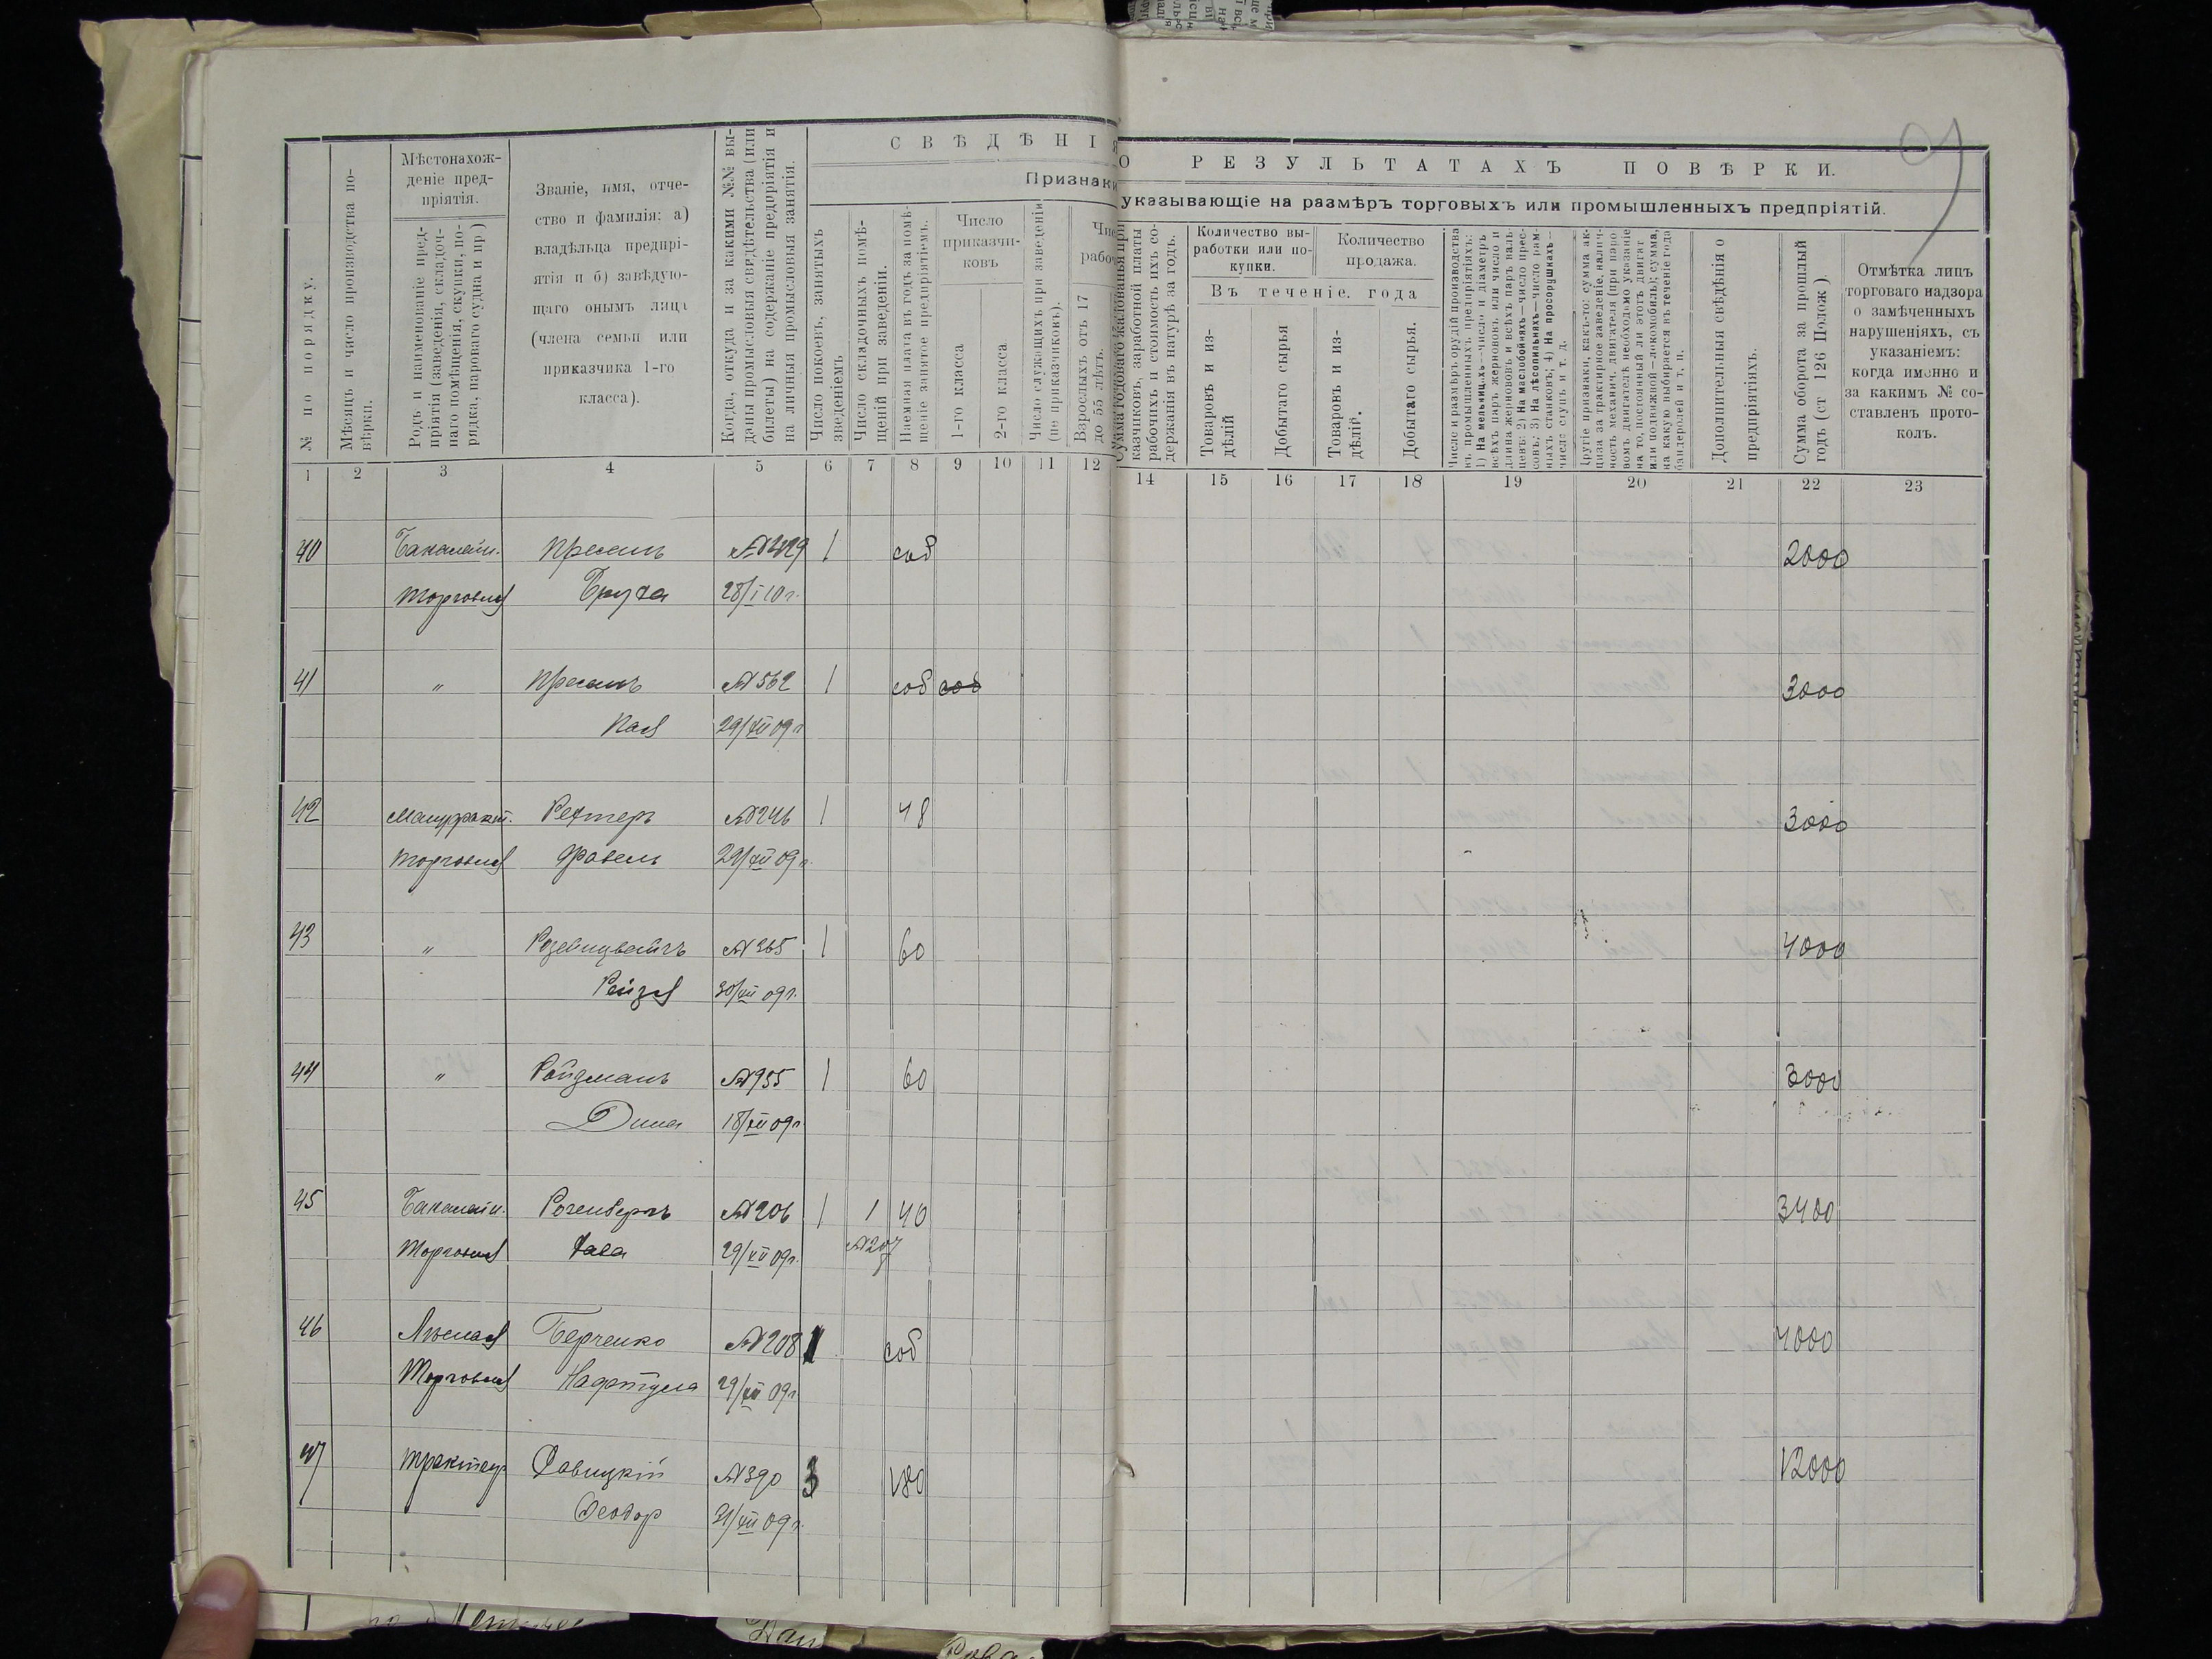 СВѢДѢНІЯ О РЕЗУЛЬТАТАХЪ ПОВѢРКИ.
Признаки указывающіе на размѣръ торговыхъ или промышленныхъ предпріятій.
№ по порядку.
Мѣсяцъ и число производства повѣрки.
Мѣстонахож-
деніе пред-
пріятія.
Родъ и наименованіе пред-
пріятія (заведенія, складоч-
наго помѣщенія, скупки, по-
рядка, парового судна и пр)
Званіе, имя, отче-
ство и фамилія: а)
владѣльца предпрі-
ятія и б) завѣдую-
щаго онымъ лица
(члена семьи или
приказчика 1-го
класса).
Когда, откуда и за какими №№ вы-
даны промысловыя свидѣтельства (или
билеты) на содержаніе предпріятія и
на личныя промысловыя занятія.
Число покоевъ, занятыхъ
зведеніемъ
Число складочныхъ помѣ-
щеній при заведеніи.
Наемная плата въ годъ за помѣ-
щеніе занятое предпріятіемъ.
Число
приказчи-
ковъ
1-го класса
2-го класса.
Число служащихъ при заведеніи
(не приказчиковъ).
Взрослыхъ отъ 17
до 55 лѣтъ.
Сумма годоваго жалованья при
казчиковъ, заработной платы
рабочихъ и стоимость ихъ со-
держанія въ натурѣ за годъ.
Количество вы-
работки или по-
купки.
Количество
продажа.
Въ теченіе. года
Товаровъ и из-
дѣлій
Добытаго сырья
Товаровъ и из-
дѣлій.
Добытаго сырья.
Число и размѣръ орудій производства
въ промышленныхъ предпріятіяхъ:
1) На мельницахъ—число и діаметръ
всѣхъ паръ жернововъ или число и
длина жернововъ и всѣхъ паръ валь
цевъ: 2) На маслобойняхъ—число прес-
совъ; 3) На лѣсопильняхъ—число рам-
ныхъ станковъ; 4) На просорушкахъ—
число ступъ и т. д.
Другіе признаки, какъ-то: сумма ак-
циза за трактирное заведеніе, налич-
ность механич. двигателя (при паро
вомъ двигателѣ необходимо указаніе
на то, постоянный ли этотъ двигат
или подвижной—локомобиль); сумма,
на какую выбирается въ теченіе года
бандеролей и т. п.
Дополнительныя свѣдѣнія о
предпріятіяхъ.
Сумма оборота за прошлый
годъ (ст 126 Полож ).
Отмѣтка лицъ
торговаго надзора
о замѣченныхъ
нарушеніяхъ, съ
указаніемъ:
когда именно и
за какимъ № со-
ставленъ прото-
колъ.
1 2 3 4 5 6 7 8 9 10 11 12 14 15 16 17 18 19 20 21 22 23
40 Бакалейн. Пресань №429 1 соб 2000
торговля Бруха 28/I 10 г.
41 " Пресанъ №562 1 соб соб 3000
Пая 29/XII 09 г
42 Мануфракт. Рехтеръ №246 1 48 3000
торговля Фавель 29/XII 09 г.
43 " Розенцвейгъ №365 1 60 4000
Рейзя 30/XII 09 г.
44 " Ройзманъ №955 1 60 3000
Дина 18/XII 09 г
45 Бакалейн. Розенбергъ №206 1 1 40 3400
торговля Хава 29/XII 09 г. №207
46 Лѣсная Берченко №208 1 соб 4000
Торговля Нафтула 29/XII 09 г
47 трактир Савицкій №390 3 180 12000
Феодор 31/XII 09 г.